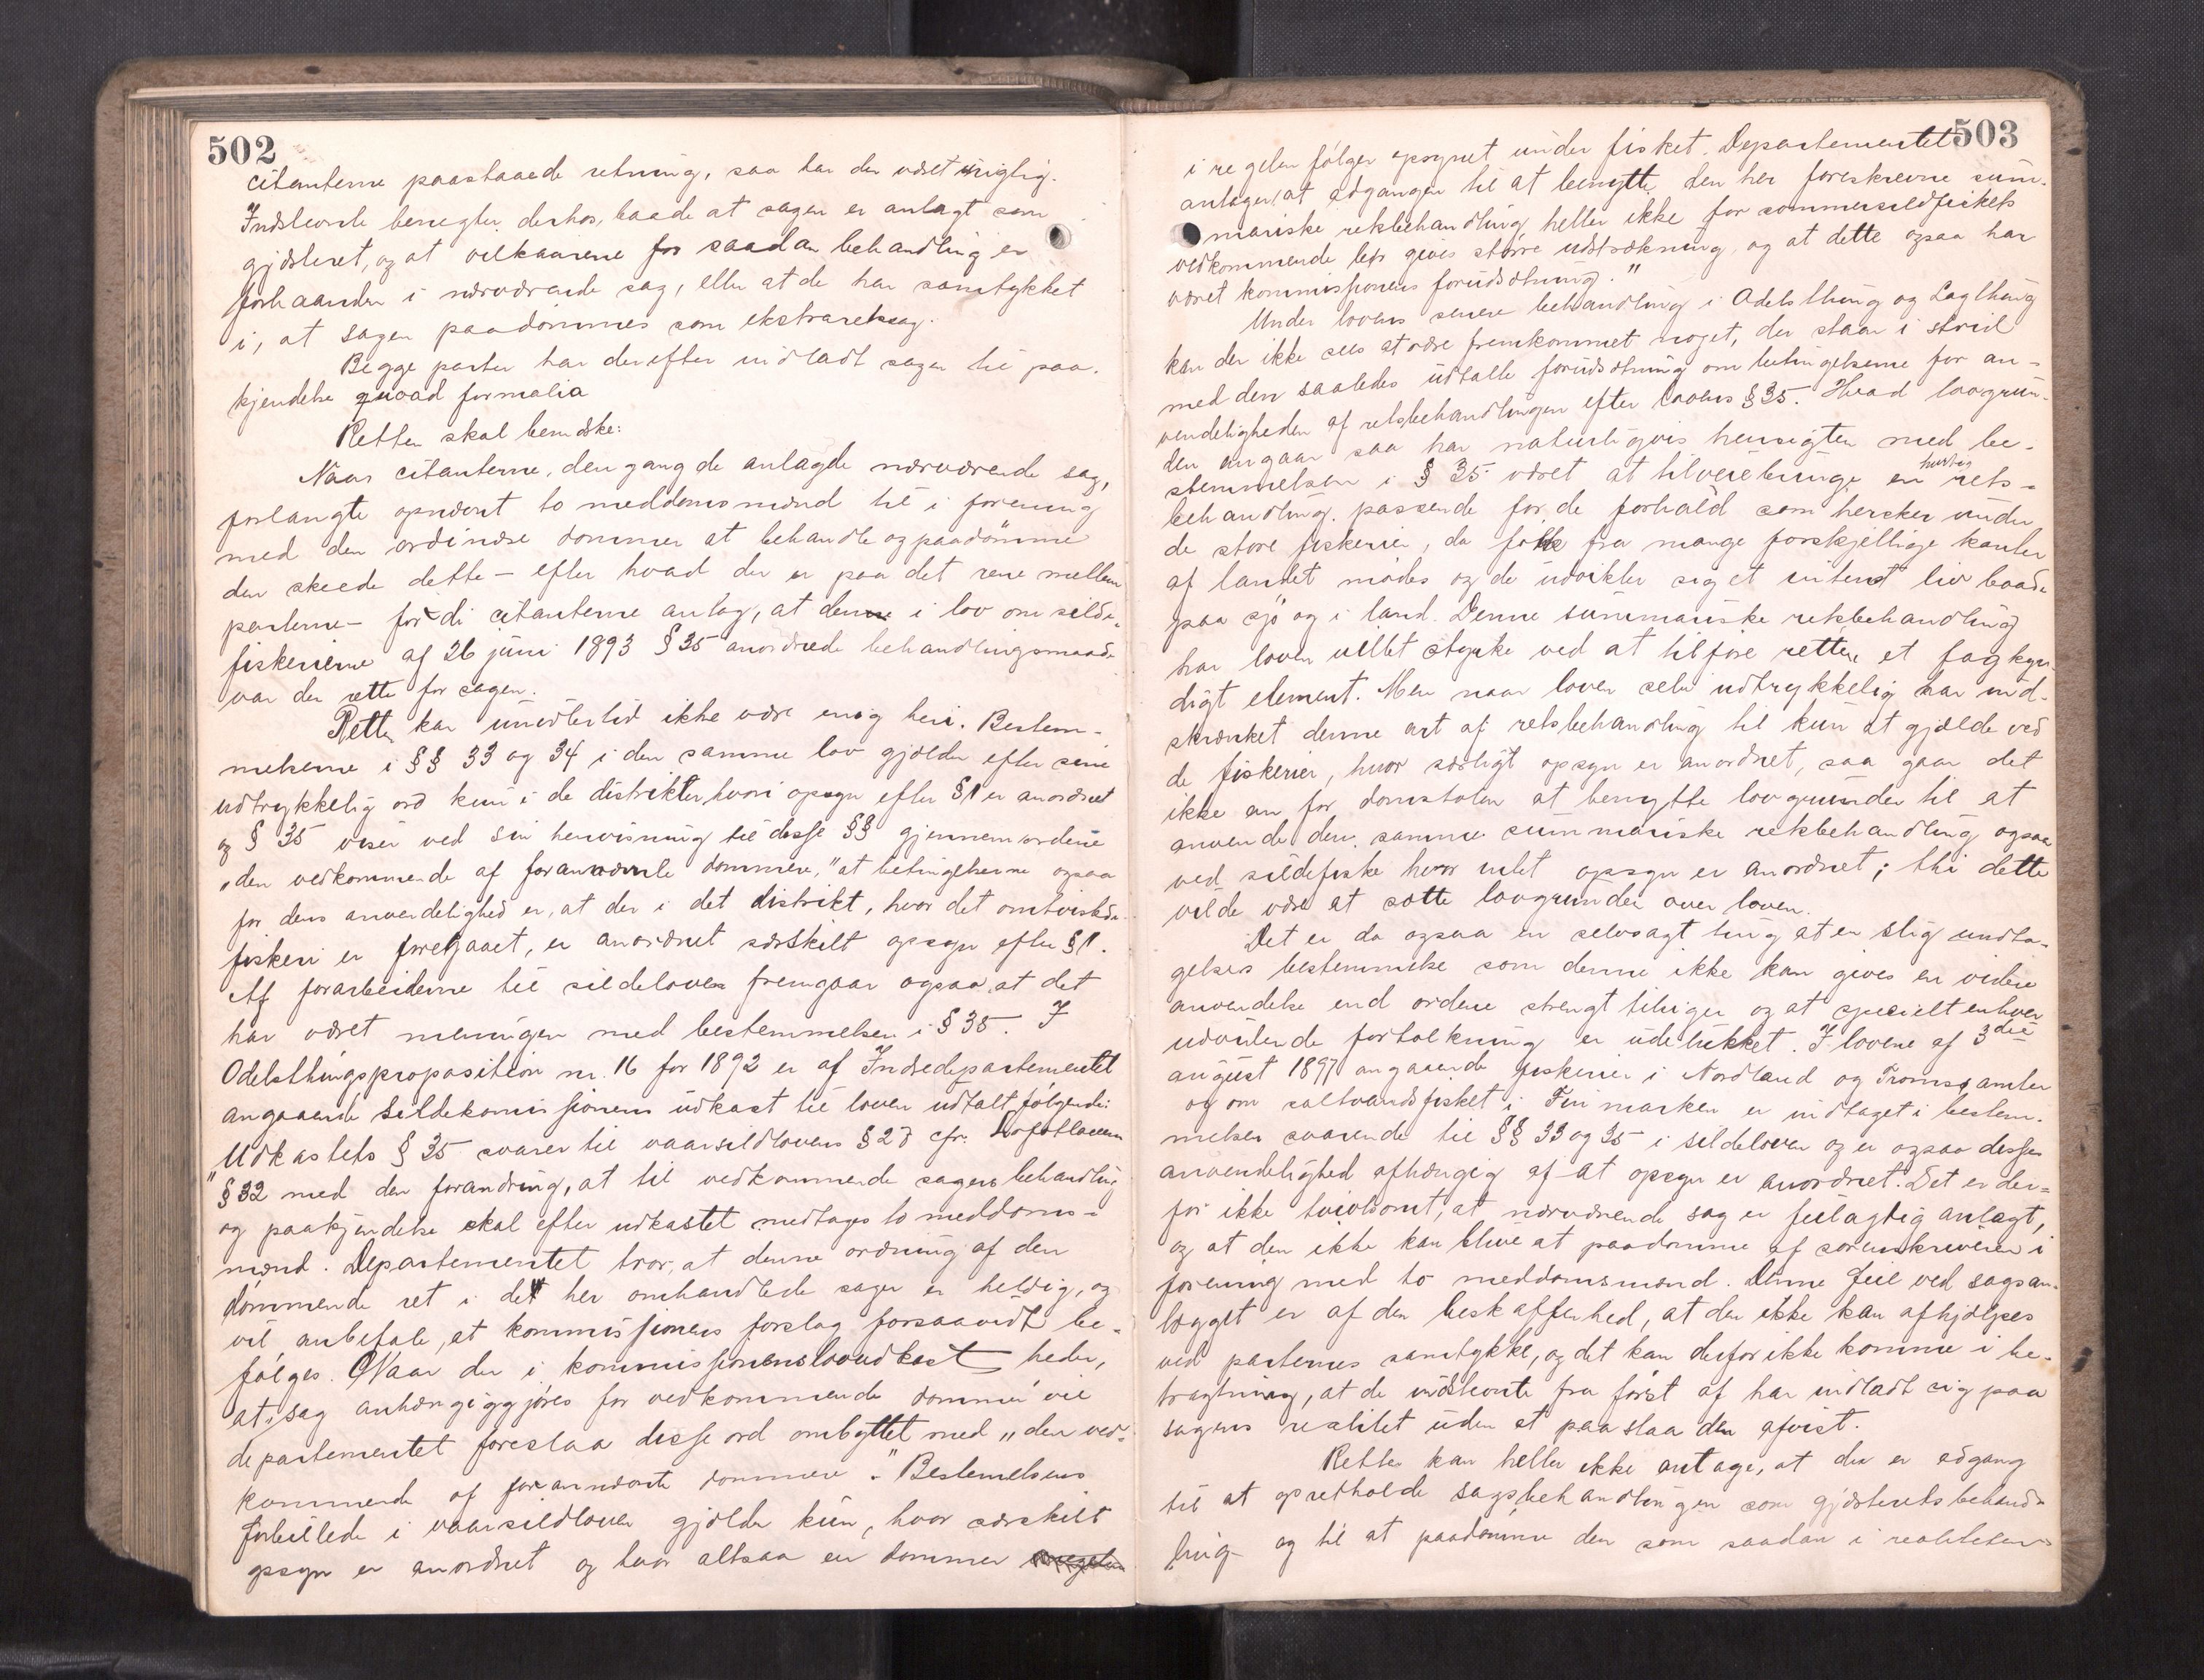 502
citanterne paastaaede retning, saa har den været urigtig.
Indstevnte benegter derhos, baade at sagen er anlagt som
gjæsteret, og at vilkaarene for saadan behandling er
forhaanden i nærværende sag, eller at de har samtykket
i, at sagen paadømmes som ekstraretssag.
Begge parter har derefter indladt sagen til paa-
kjendelse quoad formalia
Retten skal bemerke:
Naar citanterne, den gang de anlagde nærværende sag,
forlangte opnævnt to meddomsmænd til i forening
med den ordinære dommer at behandle og paadømme
den skeede dette - efter hvad der er paa det rene mellem
parterne - fordi citanterne antog, at denne i lov om silde-
fiskerierne af 26 juni 1893 § 35 anordnede behandlingsmaade
var den rette for sagen.
Retten kan imidlertid ikke være enig heri. Bestem-
melserne i §§ 33 og 34 i den samme lov gjælder efter sine
udtrykkelig ord kun i de distrikter, hvori opsyn efter § 1 er anordnet
og § 35 viser ved sin henvisning til disse §§ gjennem ordene
"den vedkommende af forannævnte dommere," at betingelserne ogsaa
for dens anvendelighed er, at der i det distrikt, hvor det omtvistede
fiskeri er foregaaet, er anordnet særskilt opsyn efter § 1.
Af forarbeiderne til sildeloven fremgaar ogsaa, at det
har været meningen med bestemmelsen i § 35. I
Odelsthingsproposition nr. 16 for 1892 er af Indredepartementet
angaaende Sildekomissionens udkast til loven udtalt følgende:
"Udkastets § 35 svarer til vaarsildlovens § 28 cfr. Lofotlovens
§ 32 med den forandring, at til vedkommende sagers behandling
og paakjendelse skal efter udkastet medtages to meddoms-
mænd. Departementet tror, at denne ordning af den
dømmende ret i de her omhandlede sager er heldig, og
vil anbefale, at kommissionens forslag forsaavidt be-
følges. Naar der i kommissionens lovudkast heder,
at sag anhængiggjøres for vedkommende dommer vil
departementet foreslaa disse ord ombyttet med "den ved-
kommende af forannævnte dommere." Bestemelsens
forbillede i vaarsildloven gjælder kun, hvor særskilt
opsyn er anordnet og hvor altsaa en dommer
503
i regelen følger opsynet under fisket. Departementet
antager, at adgangen til at benytte den her foreskrevne sum-
mariske retsbehandling heller ikke for sommersildfiskets
vedkommende bør gives større udstrækning og at dette ogsaa har
været kommissionens forudsætning."
Under lovens senere behandling i Odelsthing og Lagthing
kan der ikke sees at være fremkommet noget, der staar i strid
med den saaledes udtalte forudsætning om betingelserne for an-
vendeligheden af retsbehandlingen efter lovens § 35. Hvad lovgrun-
den angaar saa har naturligvis hensigten med be-
stemmelsen i § 35 været at tilveiebringe en hurtig rets-
behandling passende for de forhold som hersker under
de store fiskerier, da folk fra mange forskjellige kanter
af landet mødes og de udvikler sig et intenst liv baade
paa sjø og i land. Denne summariske retsbehandling
har loven villet styrke ved at tilføre retten et fagkyn-
digt element. Men naar loven selv udtrykkelig har ind-
skrænket denne art af retsbehandling til kun at gjælde ved
de fiskerier, hvor særligt opsyn er anordnet, saa gaar det
ikke an for domstolen at benytte lovgrunden til at
anvende den samme summariske retsbehandling ogsaa
ved sildefiske hvor intet opsyn er anordnet; thi dette
vilde være at sætte lovgrunden over loven.
Det er da ogsaa en selvsagt ting at en slig undta-
gelses bestemmelse som denne ikke kan gives en videre
anvendelse end ordene strengt tilsiger og at specielt enhver
udvidende fortolkning er udelukket. I lovene af 3die
august 1897 angaaende fiskerier i Nordland og Tromsø amter
og om saltvandsfisket i Finmarken er indtaget i bestem-
melser svarende til §§ 33 og 35 i sildeloven og er ogsaa disses
anvendelighed afhængig af at opsyn er anordnet. Det er der-
for ikke tvivlsomt, at nærværende sag er feilagtig anlagt,
og at den ikke kan blive at paadømme af sorenskriveren i
forening med to meddomsmænd. Denne feil ved sagsan-
lægget er af den beskaffenhed, at den ikke kan afhjælpes
ved parternes samtykke, og det kan derfor ikke komme i be-
tragtning, at de indstevnte fra først af har indladt sig paa
sagens realitet uden at paastaa den afvist.
Retten kan heller ikke antage, at der er adgang
til at opretholde sagsbehandlingen som gjæsteretsbehand-
ling og til at paadømme den som saadan i realiteten